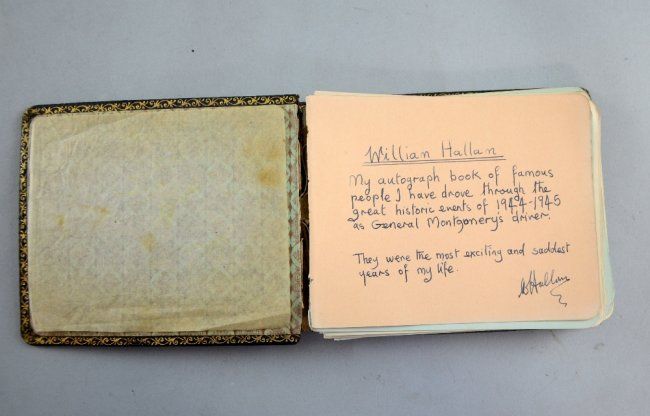 Willian Hallan
My autograph book of famous
people I have drove through the
great historic events of 1944-1945
as General Montgomerys driver.
They were the most exciting and saddest
years of my life.
WHallan